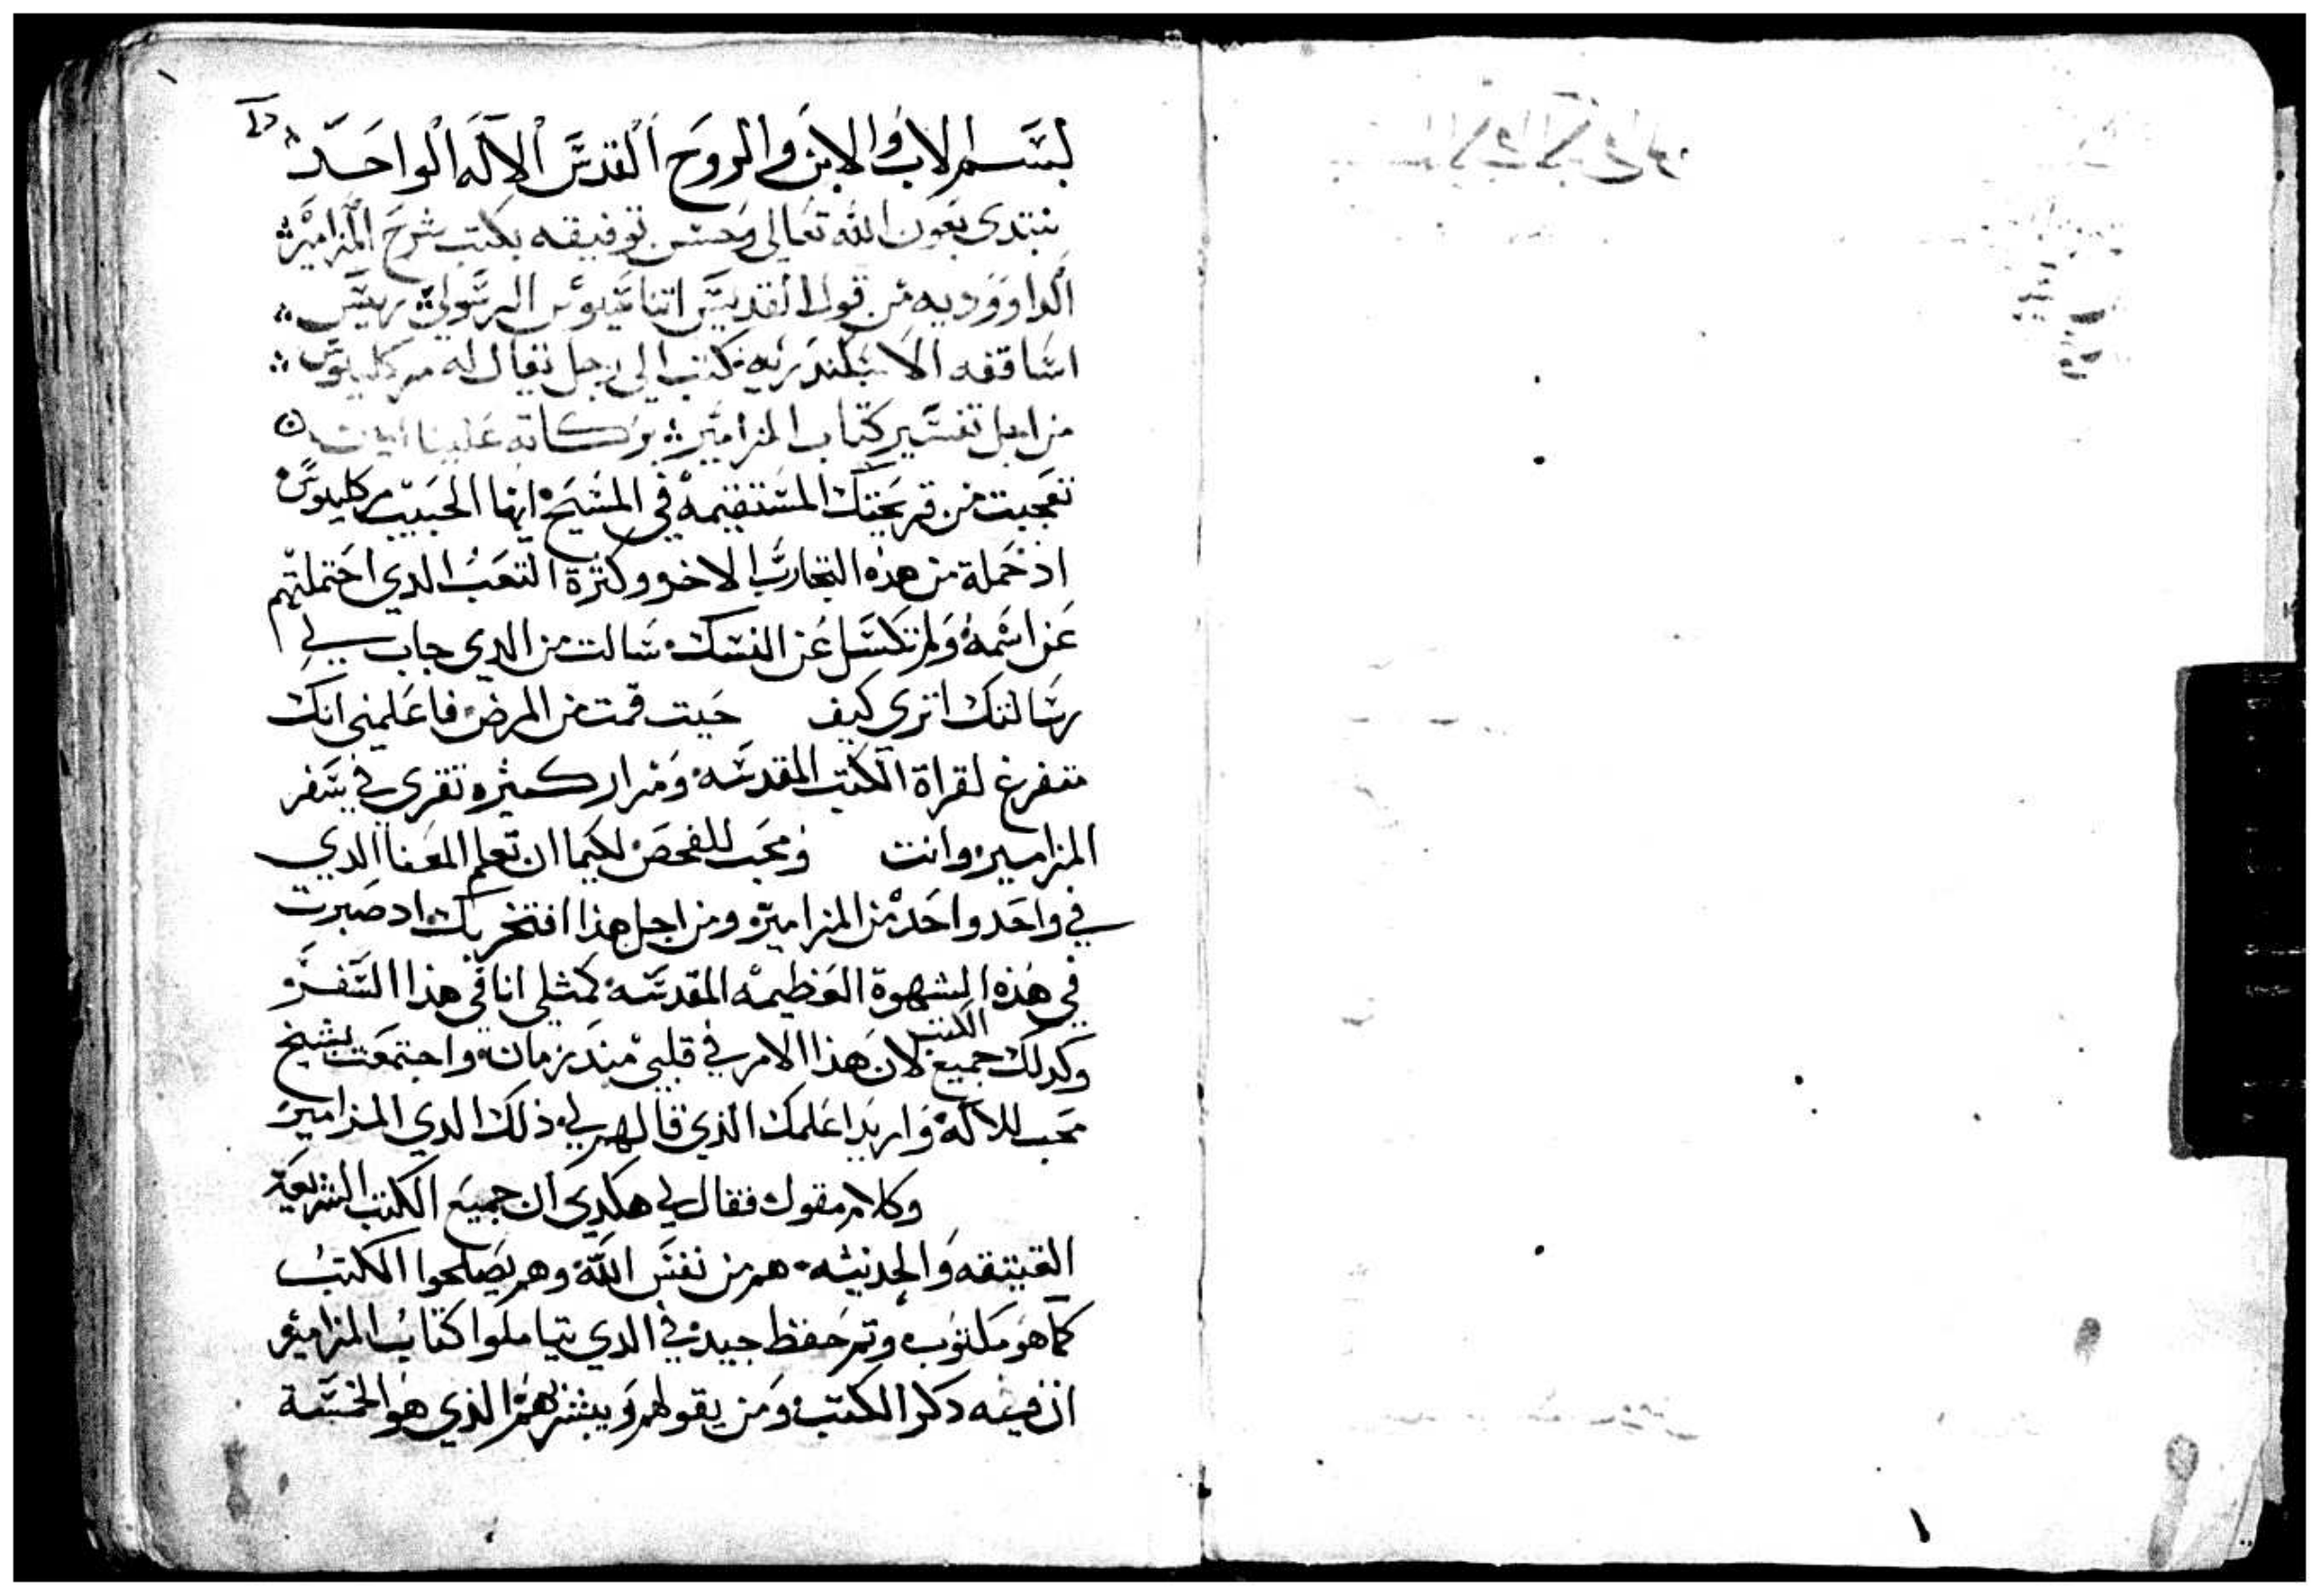 بسم الاب والابن والروح القدس الاله الواحد
نبتدى بعون الله تعالى وحسن توفيقه بكتب شرح المزامير
الداووديه من قول القديس اتناسيوس الرسولي رييس
اساقفه الاسكندريه كتب الي رجل يقال له مركلينوس
من اجل تفسير كتاب المزامير بركاته علينا امين
تعجبت من قريحتك المستقيمه في المسيح ايها الحبيب مركلينوس
اذ حملة من هذه التجارب الاخر وكثرة التعب الدي احتملتهم
عن اسمه ولم تكسل عن النسك سالت من الدي جاب لي
رسالتك اتري كيف حيت قمت من المرض فاعلمني انك
متفرغ لقراة الكتب المقدسه ومرار كثيره تقري في سفر
المزامير وانت ومحب للفحص لكيما ان تعلم المعنا الدي
في واحد واحد من المزامير ومن اجل هذا افتخر بك اد صبرت
في هذه الشهوة العظيمه المقدسه كمثلي انا في هذا السفر
وكدلك جميع الكتب لان هذا الامر في قلبي مند زمان واجتمعت بشيخ
محب للاله واريد اعلمك الذي قالهم لي ذلك الدي المزامير
وكلام مقول فقال لي هكدى ان جميع الكتب الشريعة
العتيقه والحديثه هم من نفس الله وهم يصلحوا الكتب
كما هو مكتوب وتم حفظ جيد في الدي يتاملوا كتاب المزامير
ان فيه دكر الكتب ومن يقولهم ويبشر بهم الذي هو الخمسة
١